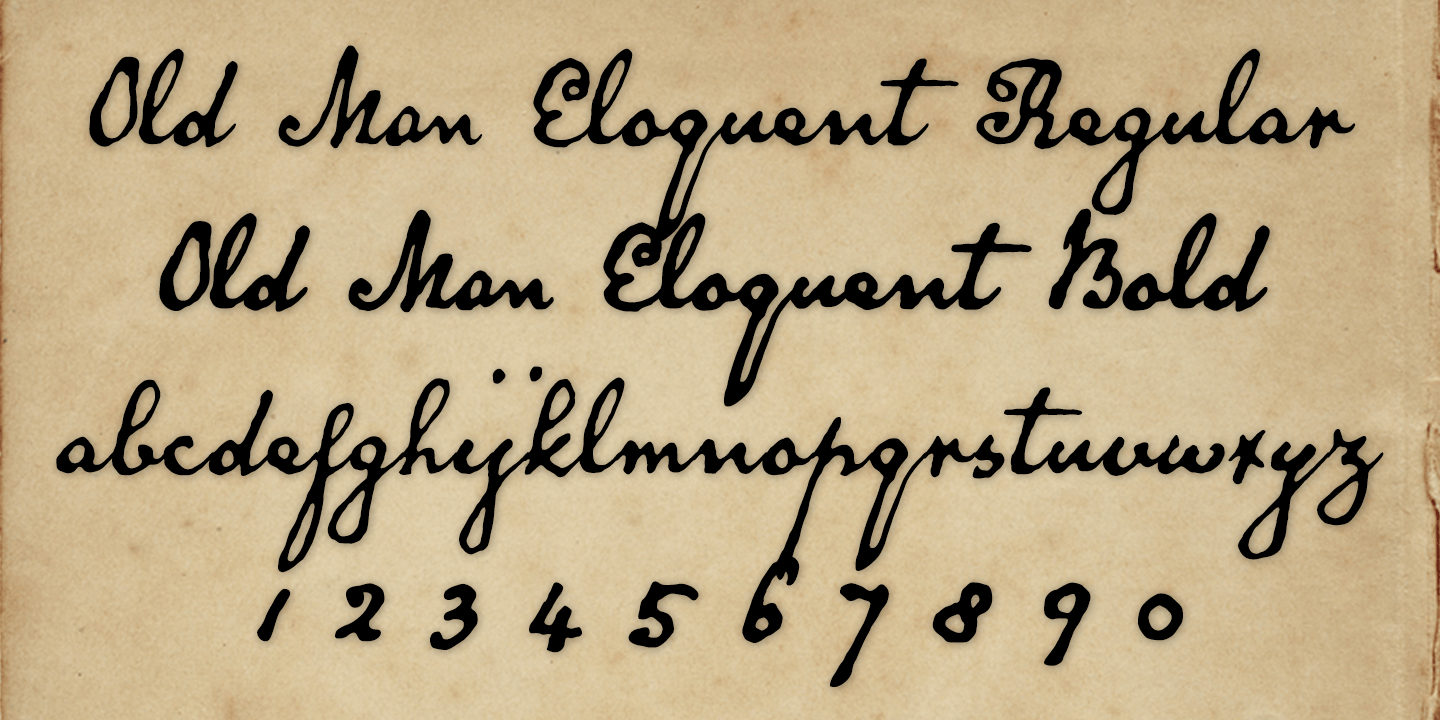 Old Man Eloquent Regular
Old Man Eloquent Bold
abcdefghijklmnopqrstuvwxyz
1 2 3 4 5 6 7 8 9 0